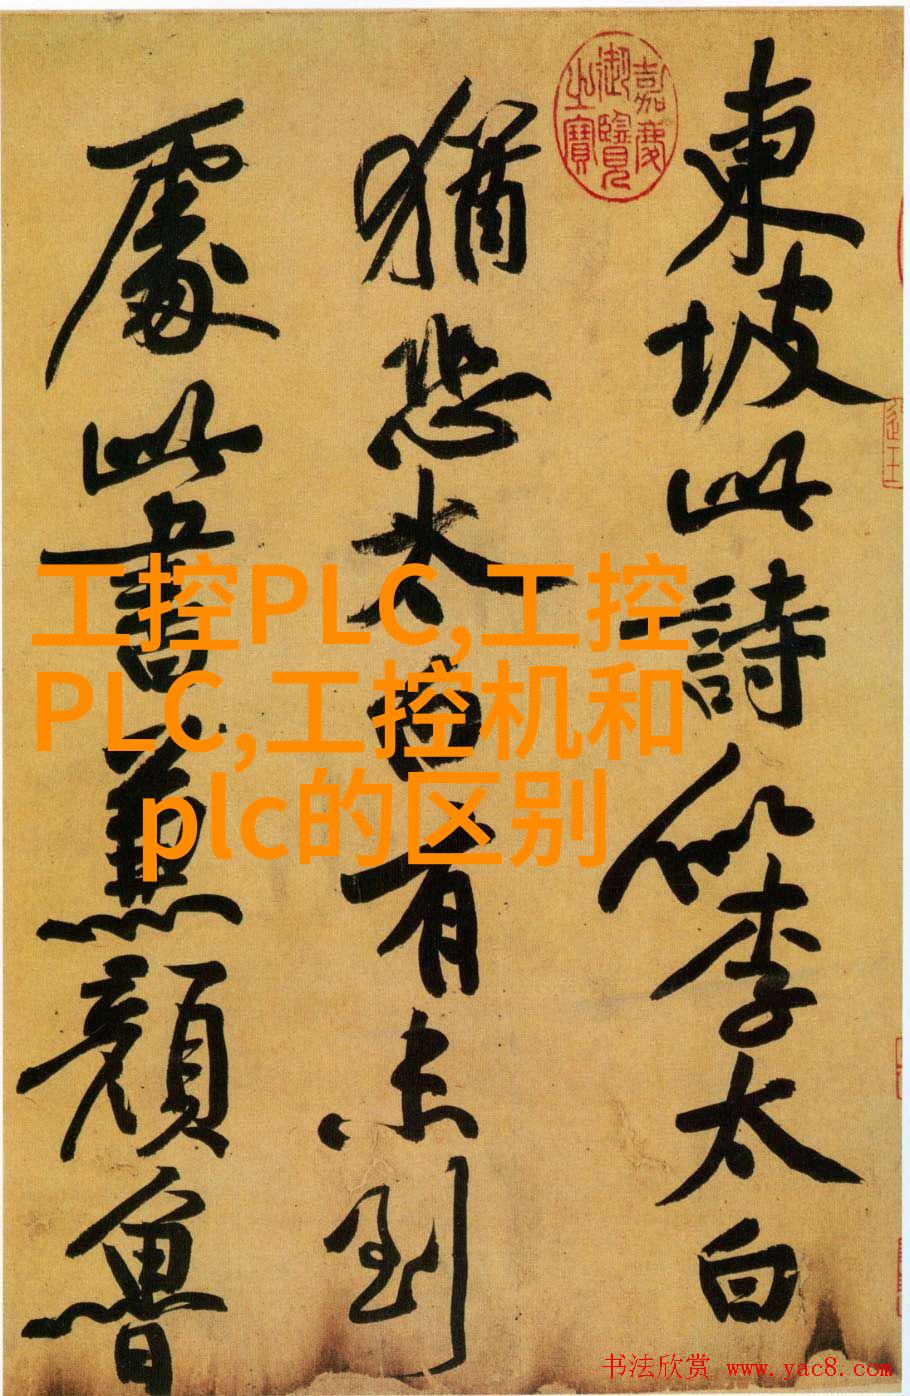 東坡此詩似李太白
猶恐太白有未到
處此書兼顏魯
嘉慶
御覽
之寶
工控PLC,工控
PLC,工控机和
plc的区别
书法欣赏 www.yac8.com